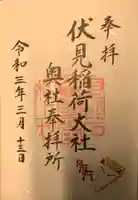 奉拝
伏見稲荷大社
奥社奉拝所
令和三年三月十三日